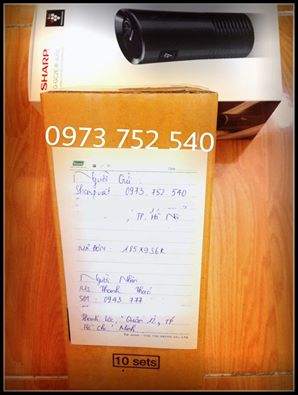 SHARP
0973 752 540
Người Gửi
0973. 752 540
, TP. Hà Nội
MÃ ĐƠN: 185X9 56K
Người Nhận
Ms Thanh Thảo
SĐT: 0943 777
Thạnh Lộc, Quận 12, TP
Hồ Chí Minh
10 sets